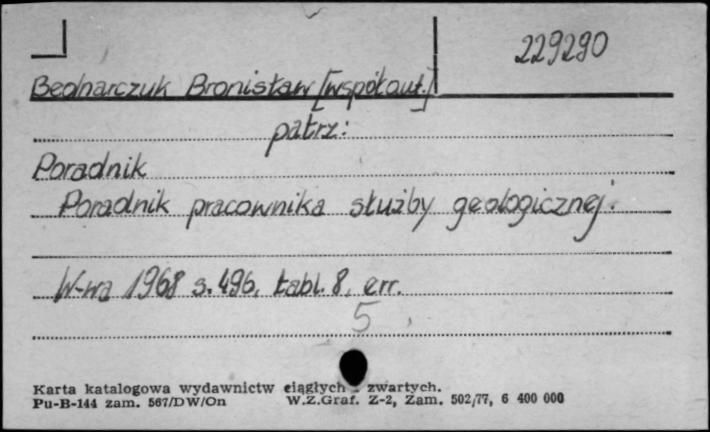 229290
Bednarczuk Bronisław [współaut.]
patrz:
Poradnik
Poradnik pracownika służby geologicznej.
W-wa 1968 s. 496, tabl. 8, err.
5
Karta katalogowa wydawnictw ciągłych i zwartych.
Pu-B-144 zam. 567/DW/On W.Z.Graf. Z-2, Zam. 502/77, 6 400 000